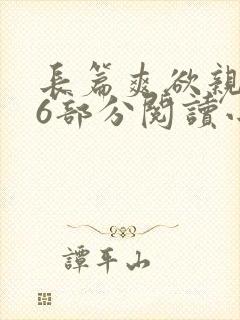 長篇爽欲親
6部分閱讀小
譚平山